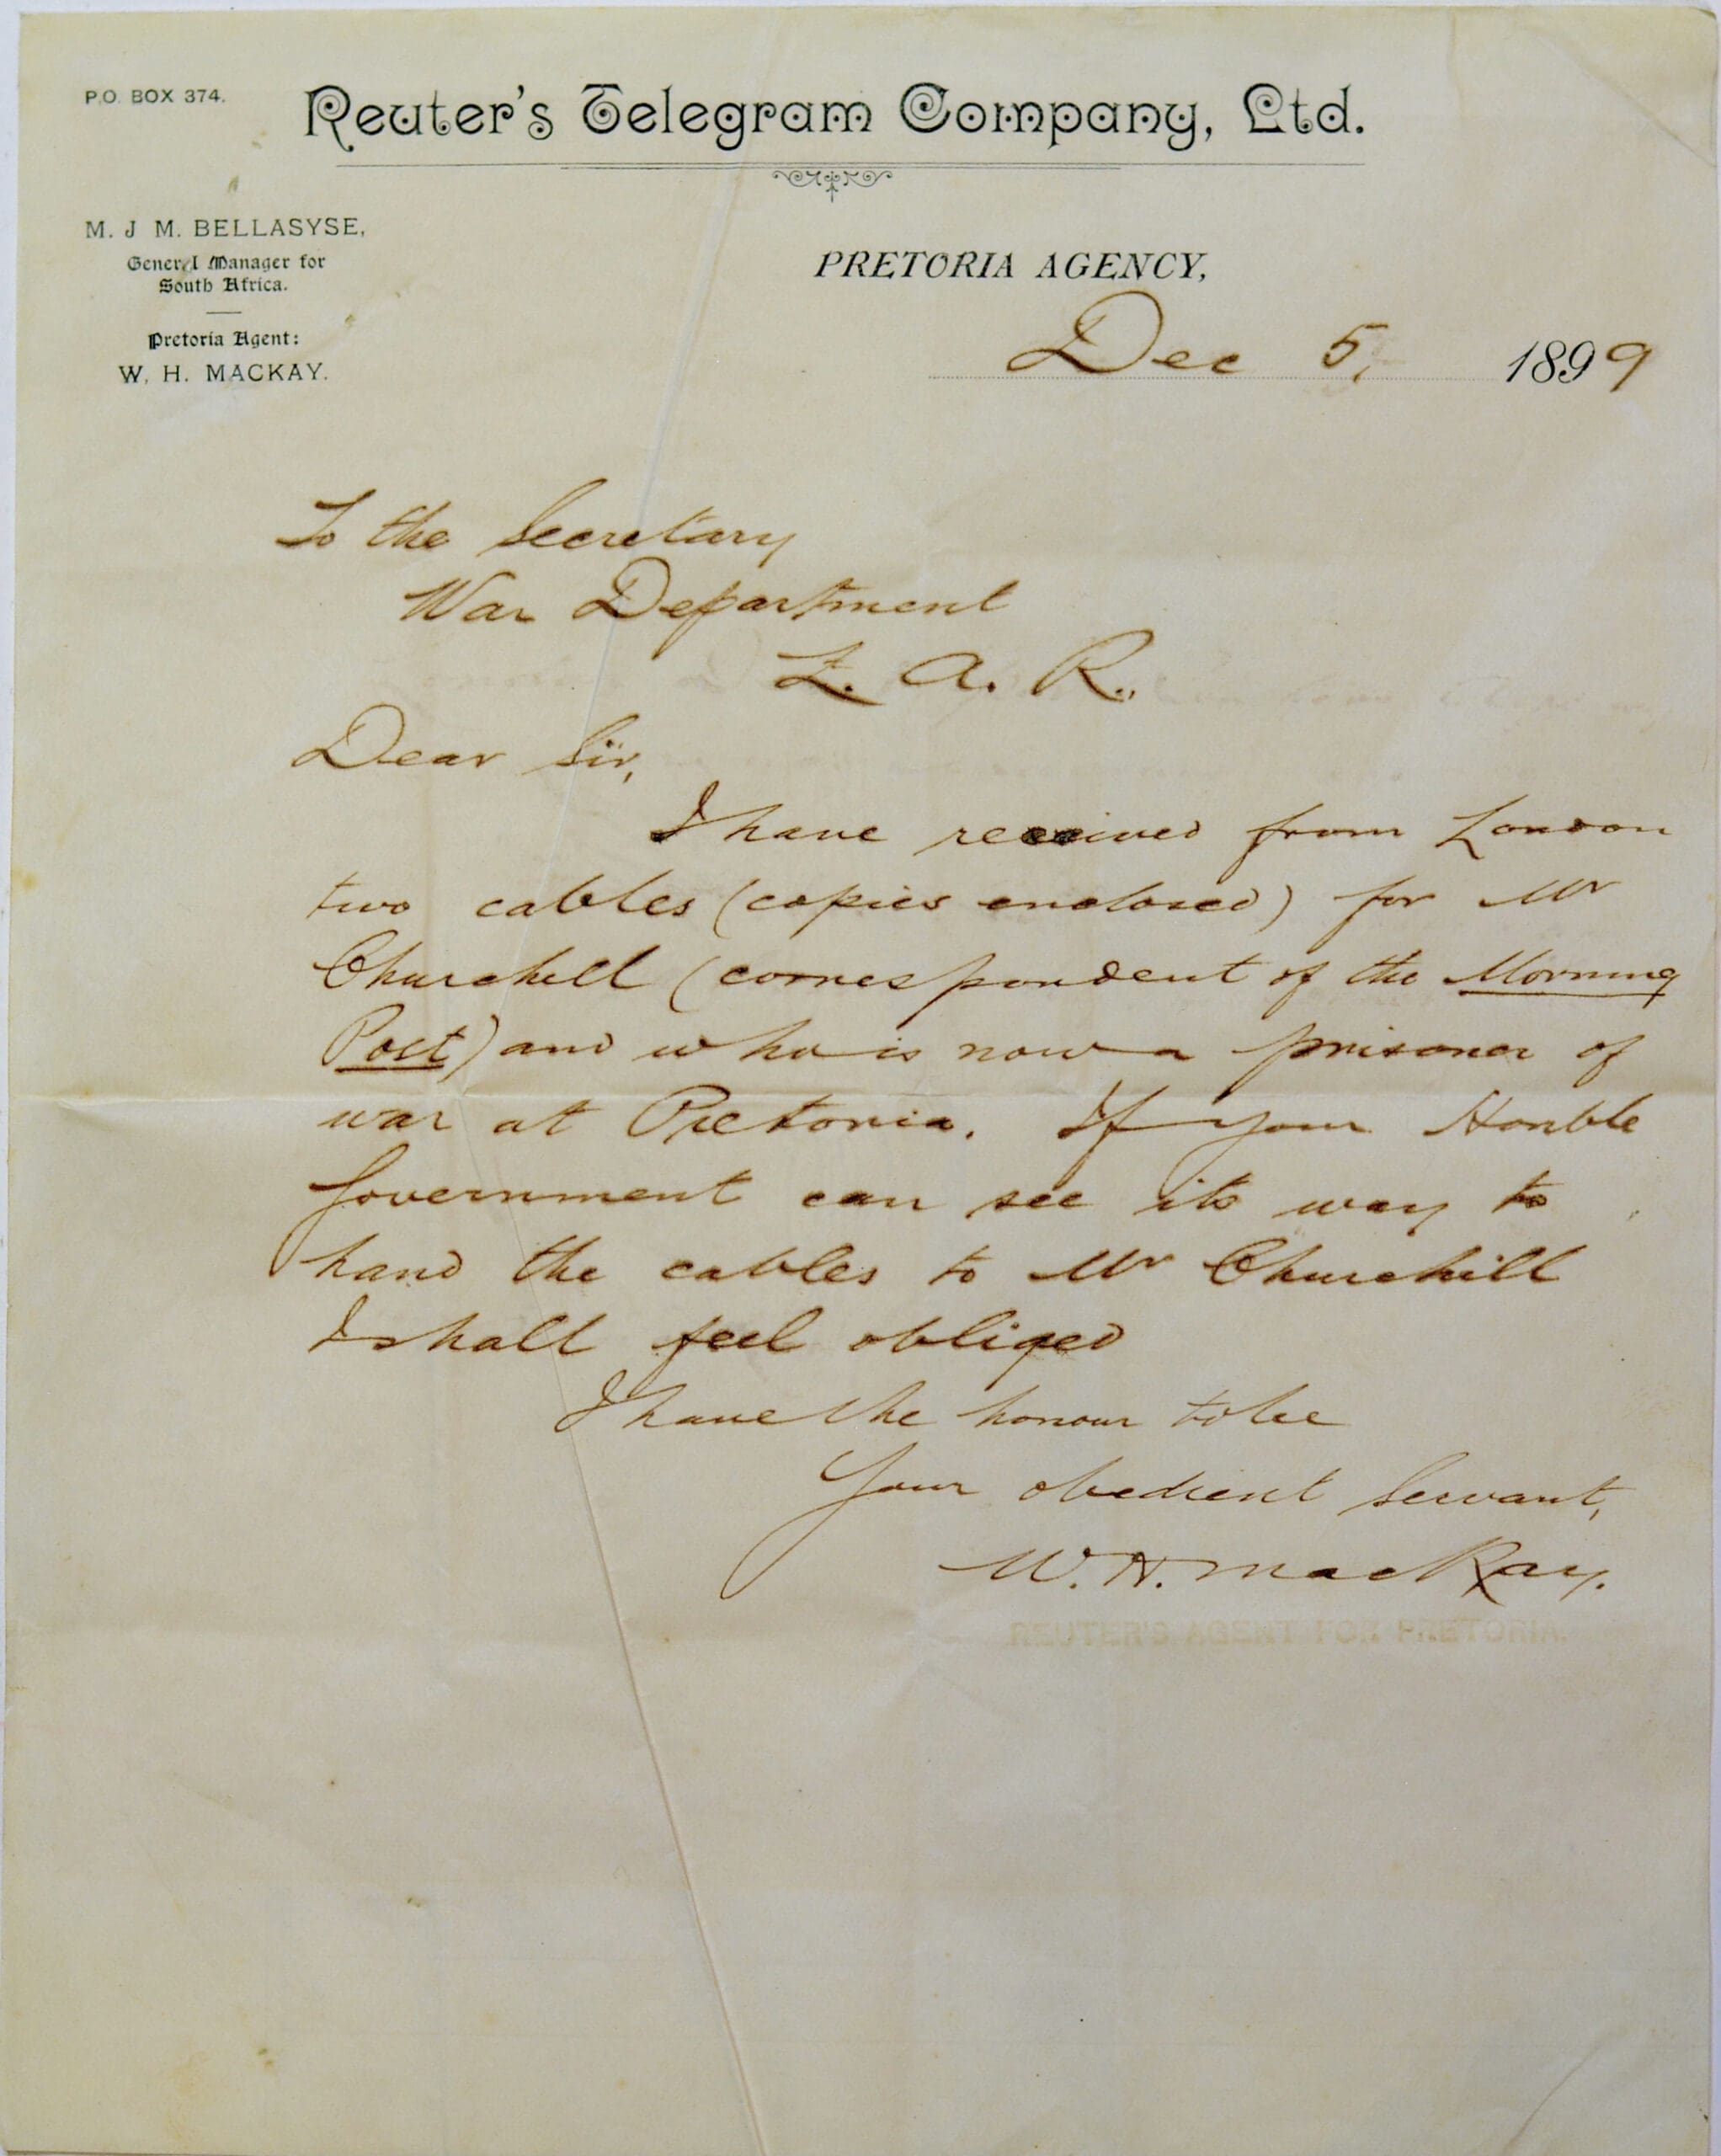 P.O. BOX 374.
Reuter's Telegram Company, Ltd.
M. J M. BELLASYSE,
General Manager for
South Africa.
Pretoria Agent:
W. H. MACKAY.
PRETORIA AGENCY,
Dec 5, 1899
To the Secretary
War Department
Z. A. R.
Dear Sir,
I have received from London
two cables (copies enclosed) for Mr
Churchill (correspondent of the Morning
Post) and who is now a prisoner of
war at Pretoria. If your Honble
Government can see its way to
hand the cables to Mr Churchill
I shall feel obliged
I have the honour to be
Your obedient Servant,
W. H. MacKay.
REUTER'S AGENT FOR PRETORIA.